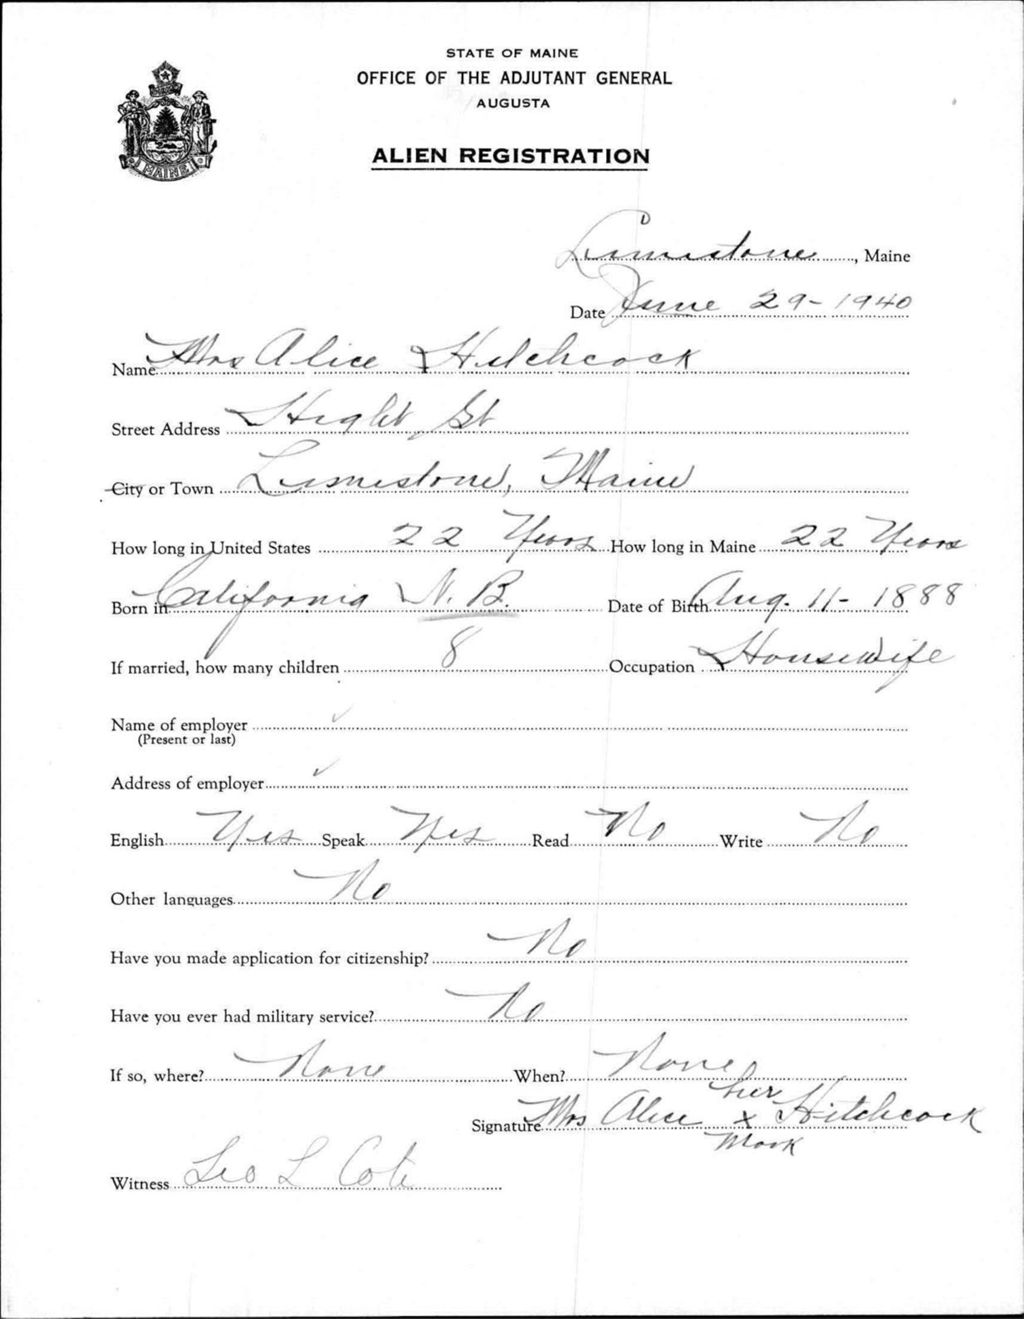 STATE OF MAINE
OFFICE OF THE ADJUTANT GENERAL
AUGUSTA
ALIEN REGISTRATION
MAINE
Limestone, Maine
Date June 29-1940
Name Mrs Alice Hitchcock
Street Address Hight St
City or Town Limestone, Maine
How long in United States 22 Years How long in Maine 22 Years
Born in California N.B. Date of Birth Aug. 11-1888
If married, how many children 8 Occupation Housewife
Name of employer
(Present or last)
Address of employer
English Yes Speak Yes Read No Write No
Other languages No
Have you made application for citizenship? No
Have you ever had military service? No
If so, where? None When? None
her
Signature Mrs Alice x Hitchcock
Mark
Witness Leo L Cote